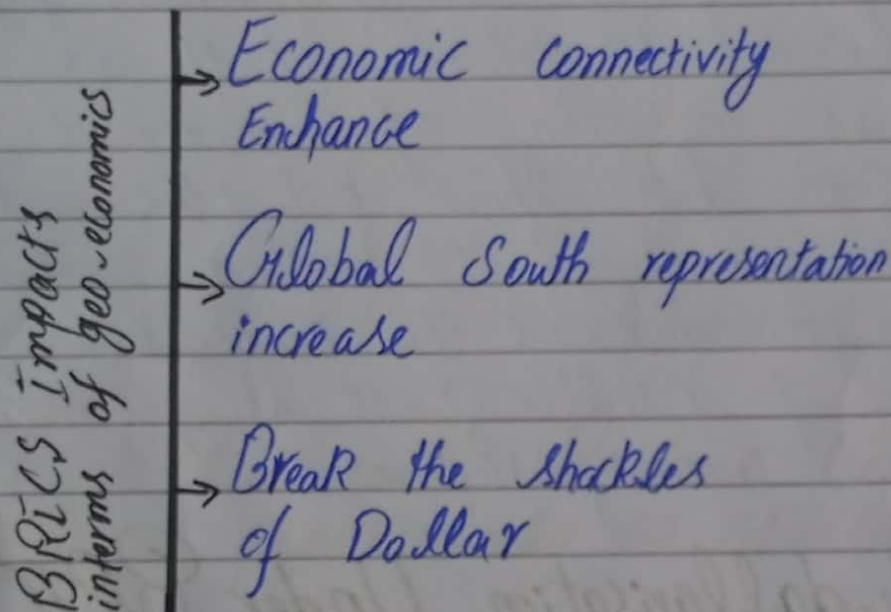 BRICS Impacts
interms of geo-economics
Economic Connectivity
Enhance
Global South representation
increase
Break the shackles
of Dollar